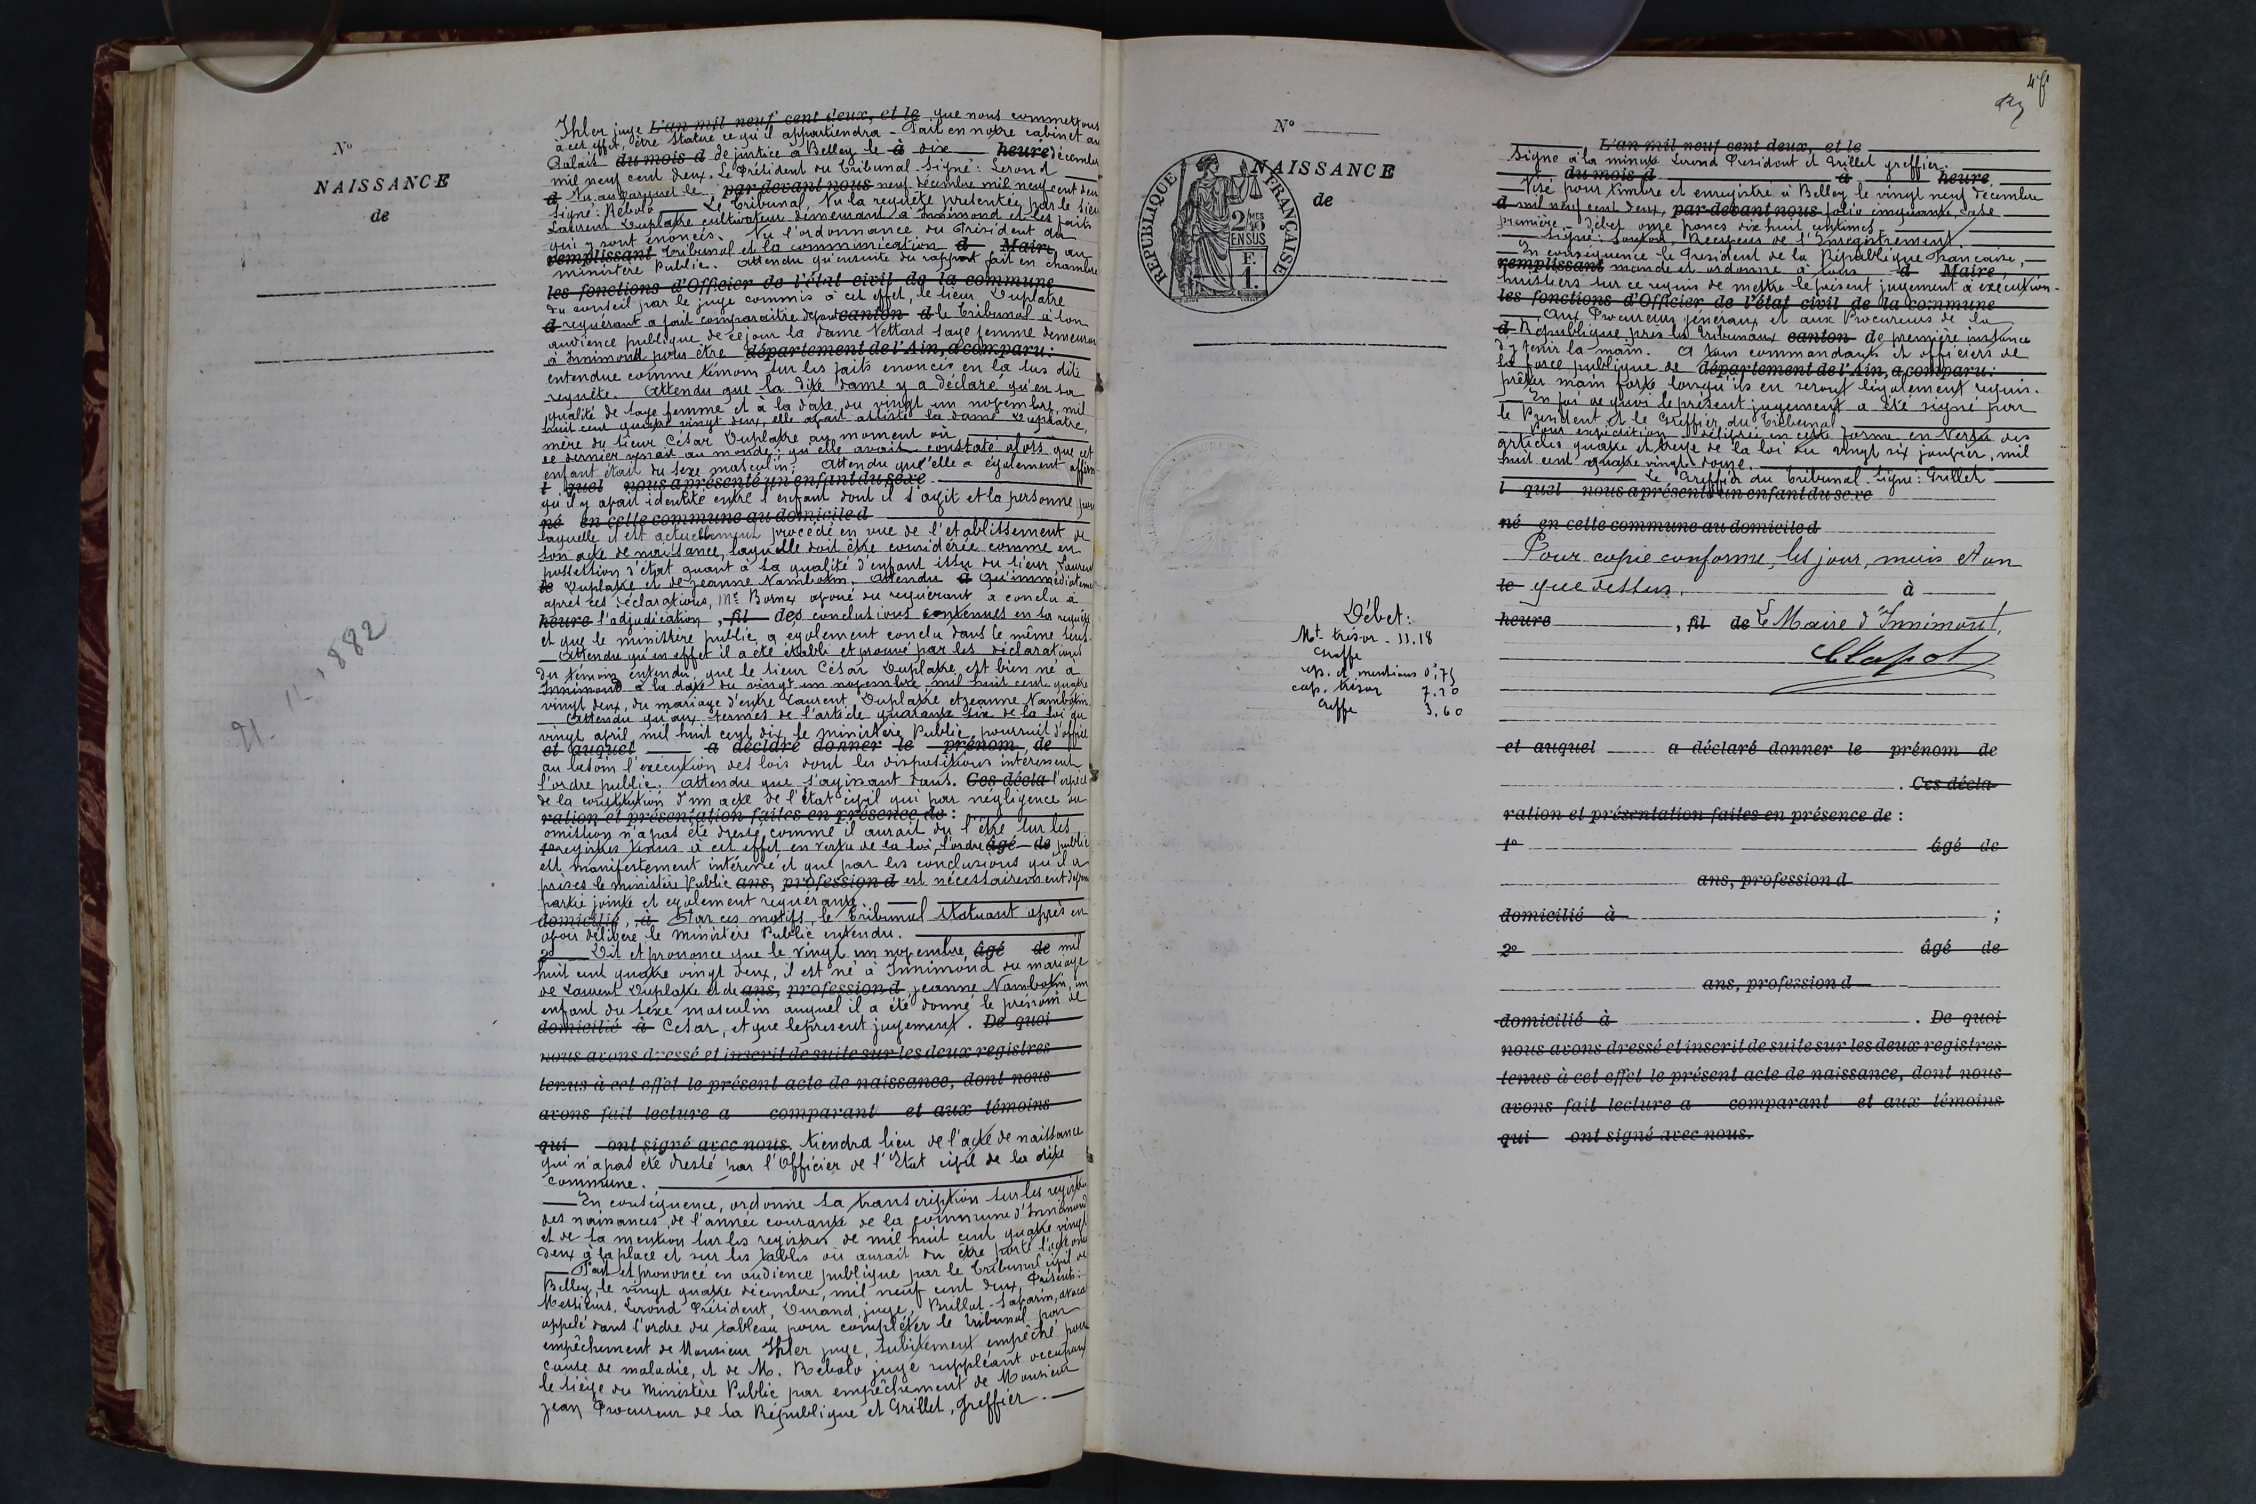 N°
NAISSANCE
de
21 - 11 - 1882
Ihler juge L'an mil neuf cent deux, et le que nous commettons
à cet effet, être statué ce qu'il appartiendra - Fait en notre cabinet au
Palais du mois d de justice à Belley, le à dix heure décembre
mil neuf cent deux. Le Président du Tribunal signé: Lerond
d Vu au Parquet le par devant nous neuf décembre mil neuf cent deux
signé: Rebolo Le Tribunal, Vu la requête présentée par le sieur
Laurent Duplatre cultivateur demeurant à Innimond et les faits
qui y sont énoncés. Vu l'ordonnance du Président du
remplissant Tribunal et la communication d Maire, au
ministère Public. Attendu qu'ensuite du rapport fait en chambre
les fonctions d'Officier de l'état civil de la commune
du conseil par le juge commis à cet effet, le sieur Duplatre
d requérant a fait comparaitre devant canton d le Tribunal à son
audience publique de ce jour la dame Vettard sage femme demeurant
à Innimond pour être département de l'Ain, a comparu:
entendue comme témoin sur les faits énoncés en la sus dite
requête. Attendu que la dite dame y a déclaré qu'en sa
qualité de sage femme et à la date du vingt un novembre, mil
huit cent quatre vingt deux, elle avait assisté la dame Duplatre,
mère du sieur César Duplatre au moment où
ce dernier venait au monde; qu'elle avait constaté alors que cet
enfant était du sexe masculin; Attendu qu'elle a également affirmé
l quel nous a présenté un enfant du sexe
qu'il y avait identité entre l'enfant dont il s'agit et la personne pour
né en cette commune au domicile d
laquelle il est actuellement procédé en vue de l'établissement de
son acte de naissance, laquelle doit être considérée comme en
possession d'état quant à sa qualité d'enfant issu du sieur Laurent
le Duplatre et de Jeanne Nambotin. Attendu à qu'immédiatement
après ces déclarations, Me Bornex avoué du requérant a conclu à
heure l'adjudication, fil des conclusions contenues en la requête
et que le ministère public a également conclu dans le même sens.
Attendu qu'en effet il a été établi et prouvé par les déclarations
du témoin entendu, que le sieur César Duplatre est bien né à
Innimond à la date du vingt un novembre mil huit cent quatre
vingt deux, du mariage d'entre Laurent Duplatre et Jeanne Nambotin.
Attendu qu'aux termes de l'article quarante six de la loi du
vingt avril mil huit cent dix, le ministère Public poursuit d'office
et auquel a déclaré donner le prénom de
au besoin l'exécution des lois dont les dispositions intéressent
l'ordre public. Attendu que s'agissant dans. Ces décla l'espèce
de la constitution d'un acte de l'état civil qui par négligence ou
ration et présentation faites en présence de :
omission n'a pas été dressé comme il aurait dû l'être sur les
1° registres tenus à cet effet en vertu de la loi, l'ordre âgé de public
est manifestement intéressé et que par les conclusions qu'il a
prises le ministère Public ans, profession d est nécessairement devenu
partie jointe et également requérante.
domicilié, à Par ces motifs, le Tribunal statuant après en
avoir délibéré, le Ministère Public entendu.
2° Dit et prononce que le vingt un novembre, âgé de mil
huit cent quatre vingt deux, il est né à Innimond du mariage
de Laurent Duplatre et de ans, profession d Jeanne Nambotin, un
enfant du sexe masculin auquel il a été donné le prénom de
domicilié à César, et que le présent jugement. De quoi
nous avons dressé et inscrit de suite sur les deux registres
tenus à cet effet le présent acte de naissance, dont nous
avons fait lecture a comparant et aux témoins
qui ont signé avec nous. tiendra lieu de l'acte de naissance
qui n'a pas été dressé par l'Officier de l'Etat civil de la dite
commune.
En conséquence, ordonne sa transcription sur les registres
des naissances de l'année courante de la commune d'Innimond
et de sa mention sur les registres de mil huit cent quatre vingt
deux à la place et sur les tables où aurait du être porté l'acte omis
Fait et prononcé en audience publique par le Tribunal civil de
Belley, le vingt quatre décembre, mil neuf cent deux, Présents:
Messieurs, Lerond Président, Durand juge, Brillat-Savarin, avocat
appelé dans l'ordre du tableau pour compléter le Tribunal par
empêchement de Monsieur Ihler juge, subitement empêché pour
cause de maladie, et de M. Rebolo juge suppléant occupant
le siège du Ministère Public par empêchement de Monsieur
Jean Procureur de la République et Grillet, greffier.
N°
NAISSANCE
de
RÉPUBLIQUE FRANÇAISE
2/10MES
EN SUS
F.
1.
Débet:
Mt trésor - 11.18
Greffe
rép. et mentions 0.75
exp. trésor 7.20
Greffe 3.60
47
L'an mil neuf cent deux, et le
Signé à la minute Lerond Président et Grillet greffier.
du mois d à heure
Visé pour timbre et enregistré à Belley le vingt neuf décembre
d mil neuf cent deux, par devant nous folio cinquante, case
première. Débet onze francs dix huit centimes.
Signé: Receveur de l'Enregistrement.
En conséquence le Président de la République Française,
remplissant mande et ordonne à tous d Maire,
huissiers sur ce requis de mettre le présent jugement à exécution.
les fonctions d'Officier de l'état civil de la commune
Aux Procureurs généraux et aux Procureurs de la
d République près les Tribunaux canton de première instance
d'y tenir la main. A tous commandants et officiers de
la force publique de département de l'Ain, a comparu:
prêter main forte lorsqu'ils en seront légalement requis.
En foi de quoi le présent jugement a été signé par
le Président et le Greffier du Tribunal
Pour expédition délivrée en cette forme en vertu des
articles quatre et treize de la loi du vingt six janvier, mil
huit cent quatre vingt douze.
Le Greffier du Tribunal. Signé: Grillet
l quel nous a présenté un enfant du sexe
né en cette commune au domicile d
Pour copie conforme, les jour, mois et an
le que dessus. à
heure , fil de Le Maire d'Innimont,
Clapot
et auquel a déclaré donner le prénom de
. Ces décla-
ration et présentation faites en présence de :
1° âgé de
ans, profession d
domicilié à ;
2° âgé de
ans, profession d
domicilié à . De quoi
nous avons dressé et inscrit de suite sur les deux registres
tenus à cet effet le présent acte de naissance, dont nous
avons fait lecture a comparant et aux témoins
qui ont signé avec nous.